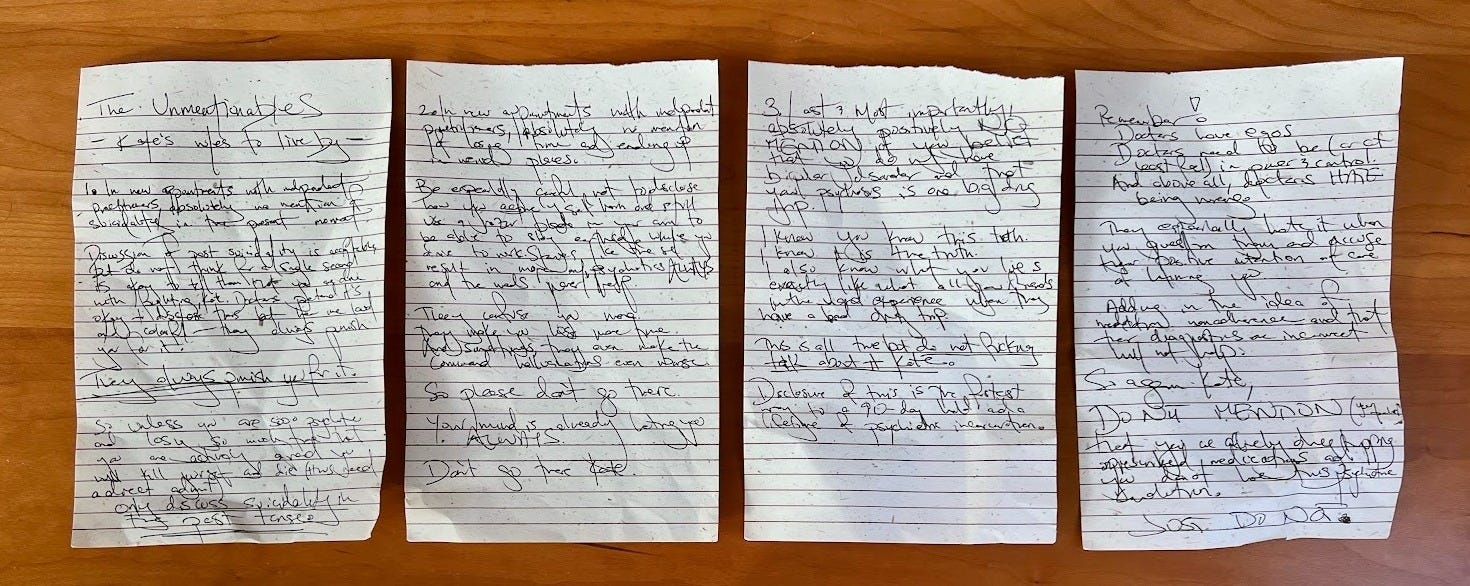 The Unmentionables
- Kate's rules to live by -
1. In new appointments with independent
practitioners absolutely no mention of
suicidality in the present moment
Discussion of past suicidality is acceptable
but do not think for a single second
its okay to tell them that you are
with fighting Kate. Doctors pretend it's
okay to disclose this but for me last
and colorful - they always punish
you for it.
They always punish you for it.
So unless you are sooo psychotic
and losing so much time that
you are actively afraid you
will kill yourself and need
a direct admit
only discuss suicidality in
the past tense.
2. In new appointments with independent
practitioners, absolutely no mention
of losing time and ending up
in weird places.
Be especially careful not to disclose
how you actively self harm and still
use a razor blade to your arm to
be able to stay
result in more psychotics ALWAYS
and the meds never help.
They confuse you more
They make you lose more time.
And sometimes they even make the
command hallucinations even worse.
So please dont go there.
Your mind is already hating you
ALWAYS.
Dont go there Kate.
3. Last & Most importantly!
absolutely positively NO
MENTION of your belief
that you do not have
bipolar disorder and that
your psychosis is one big drug
trip.
I know you know this truth.
I know it is the truth.
I also know what you see is
exactly like what all your friends
in the world experience when they
have a bad drug trip
This is all true but do not fucking
talk about it Kate.
Disclosure of this is the fastest
way to a 90-day hold and a
lifetime of psychiatric incarceration.
Remember!
Doctors love egos
Doctors need to be (or at
least feel) in power & control.
And above all, doctors HATE
being wrong.
They especially hate it when
you question them and accuse
their positive intention of care
of harming you.
Adding in the idea of
medication nonadherence and that
their diagnostics are incorrect
will not help.
So again Kate,
DO NOT MENTION
that you're actively
medications and
you do not have this psychotic
Just DO NOT.